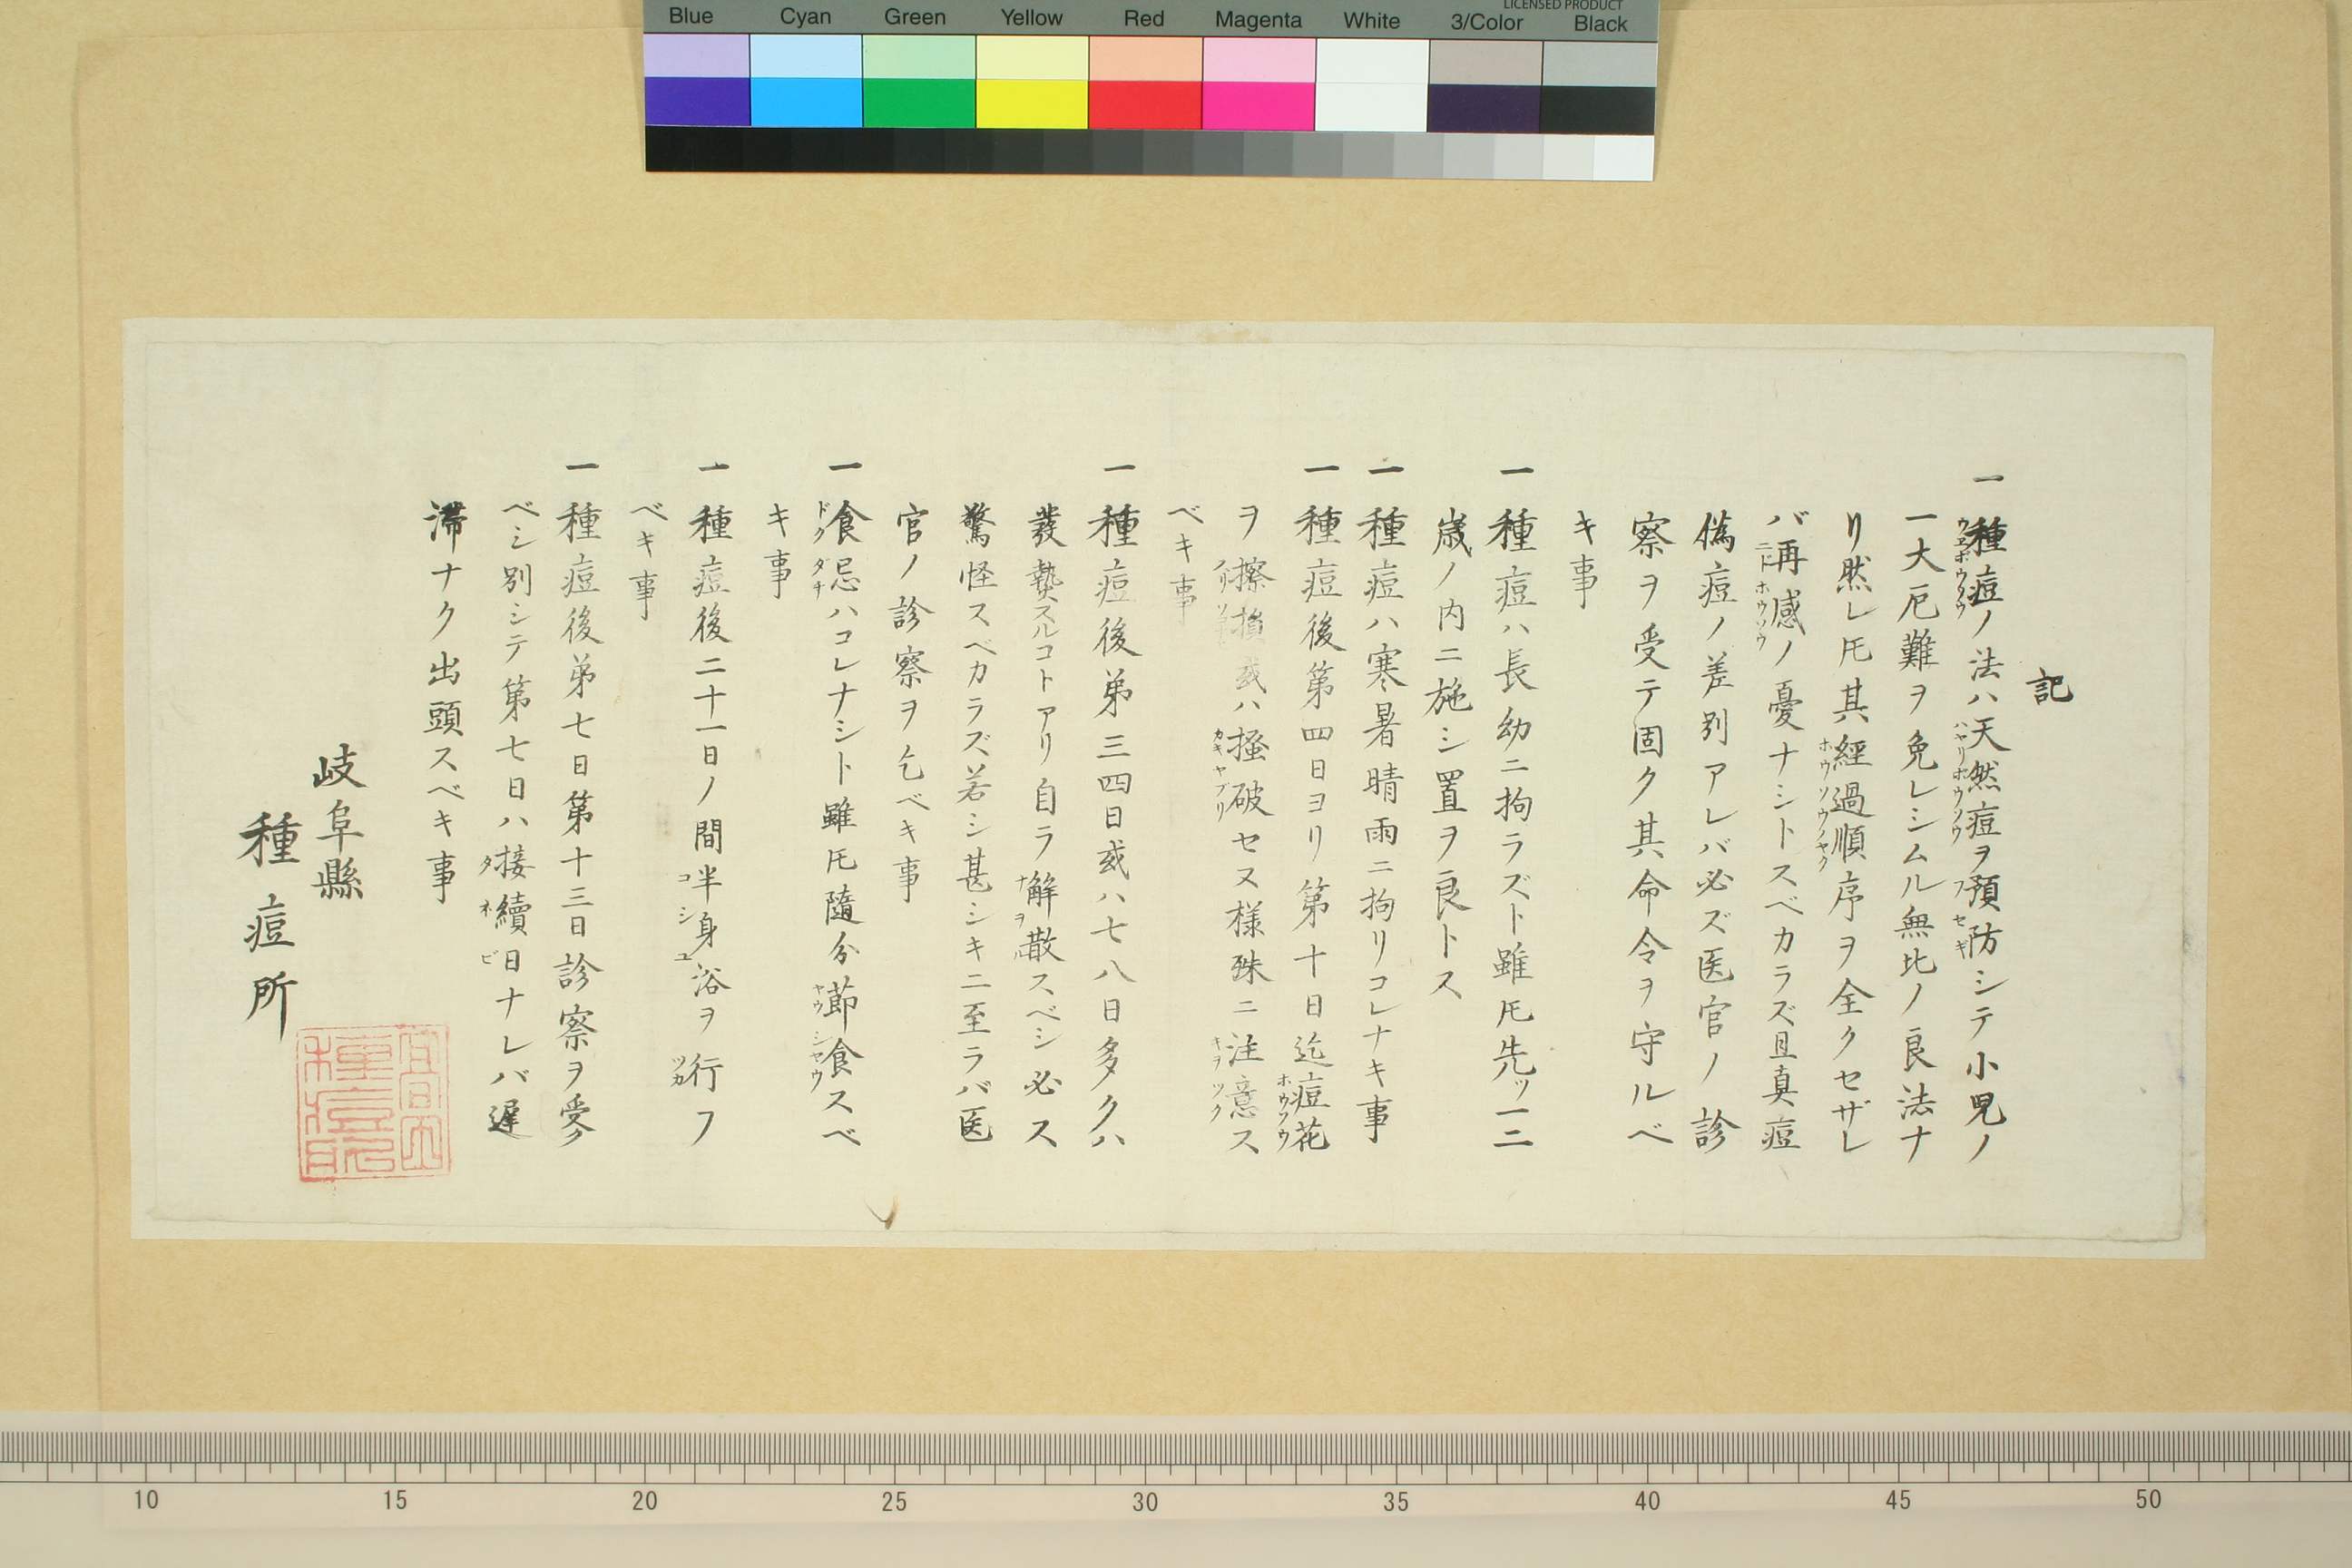 Blue Cyan Green Yellow Red Magenta White 3/Color Black
LICENSED PRODUCT
記
一種痘ノ法ハ天然痘ヲ預防シテ小児ノ
ウヱボウソウ ハヤリホウソウ フセギ
一大厄難ヲ免レシムル無比ノ良法ナ
リ然レ𪜈其經過順序ヲ全クセザレ
ホウソウノヤク
バ再感ノ憂ナシトスベカラズ且真痘
ニドホウソウ
偽痘ノ差別アレバ必ズ医官ノ診
察ヲ受テ固ク其命令ヲ守ルベ
キ事
一種痘ハ長幼ニ拘ラズト雖𪜈先ッ一二
歳ノ内ニ施シ置ヲ良トス
一種痘ハ寒暑晴雨ニ拘リコレナキ事
一種痘後第四日ヨリ第十日迄痘花
ホウソウ
ヲ擦損或ハ掻破セヌ様殊ニ注意ス
カキヤブリ キヲツク
ベキ事
一種痘後第三四日或ハ七八日多クハ
發𤍠スルコトアリ自ラ解散スベシ必ス
ナヲル
驚怪スベカラズ若シ甚シキニ至ラバ医
官ノ診察ヲ乞ベキ事
一食忌ハコレナシト雖𪜈随分節食スベ
ドクダチ ヤウシヤウ
キ事
一種痘後二十一日ノ間半身浴ヲ行フ
コシユ ツカ
ベキ事
一種痘後第七日第十三日診察ヲ受ク
ベシ別シテ第七日ハ接續日ナレバ遅
タネビ
滞ナク出頭スベキ事
岐阜縣
種痘所
10 15 20 25 30 35 40 45 50